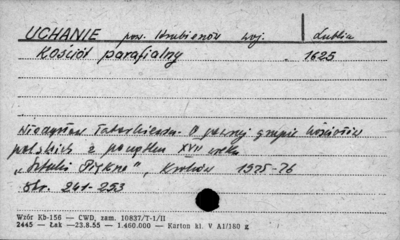 UCHANIE pow. Hrubieszów woj. Lublin
Kościół parafialny . 1625
Władysław Tatarkiewicz. O pewnej grupie kościołów
polskich z początku XVII wieku
„Sztuki Piękne", Kraków 1925-26
Str. 241-253
Wzór Kb-156 — CWD, zam. 10837/T-1/II
2445 — Łak —23.8.55 — 1.460.000 — Karton kl. V A1/180 g